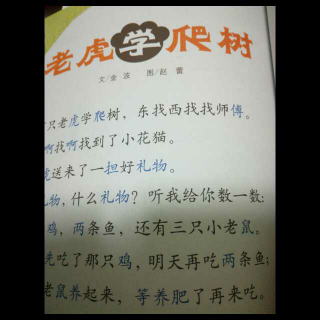 老虎学爬树
文/金波 图/赵蕾
只老虎学爬树，东找西找找师傅。
啊找啊找到了小花猫。
虎送来了一担好礼物。
物，什么礼物？听我给你数一数：
鸡，两条鱼，还有三只小老鼠。
先吃了那只鸡，明天再吃两条鱼；
老鼠养起来，等养肥了再来吃。